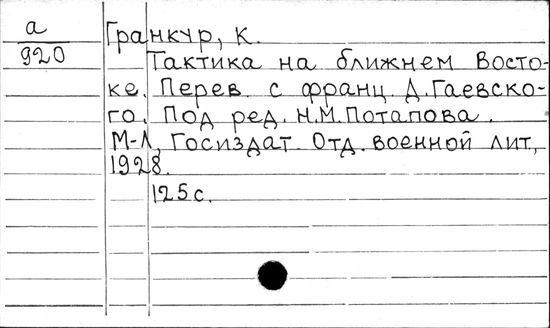 а
920
Гранкур, К.
Тактика на ближнем Восто-
ке. Перев. с франц. Д. Гаевско-
го. Под ред. Н.М. Потапова.
М-Л, Госиздат. Отд. военной лит,
1928.
125 с.